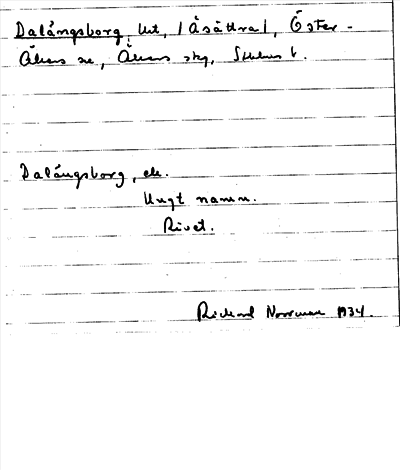 Dalängsborg, lht, (Åsättra), Öster-
Åkers sn, Åkers sky, Sthlms l.
Dalängsborg, ele.
Ungt namn.
Rivet.
Richard Norrman 1934.